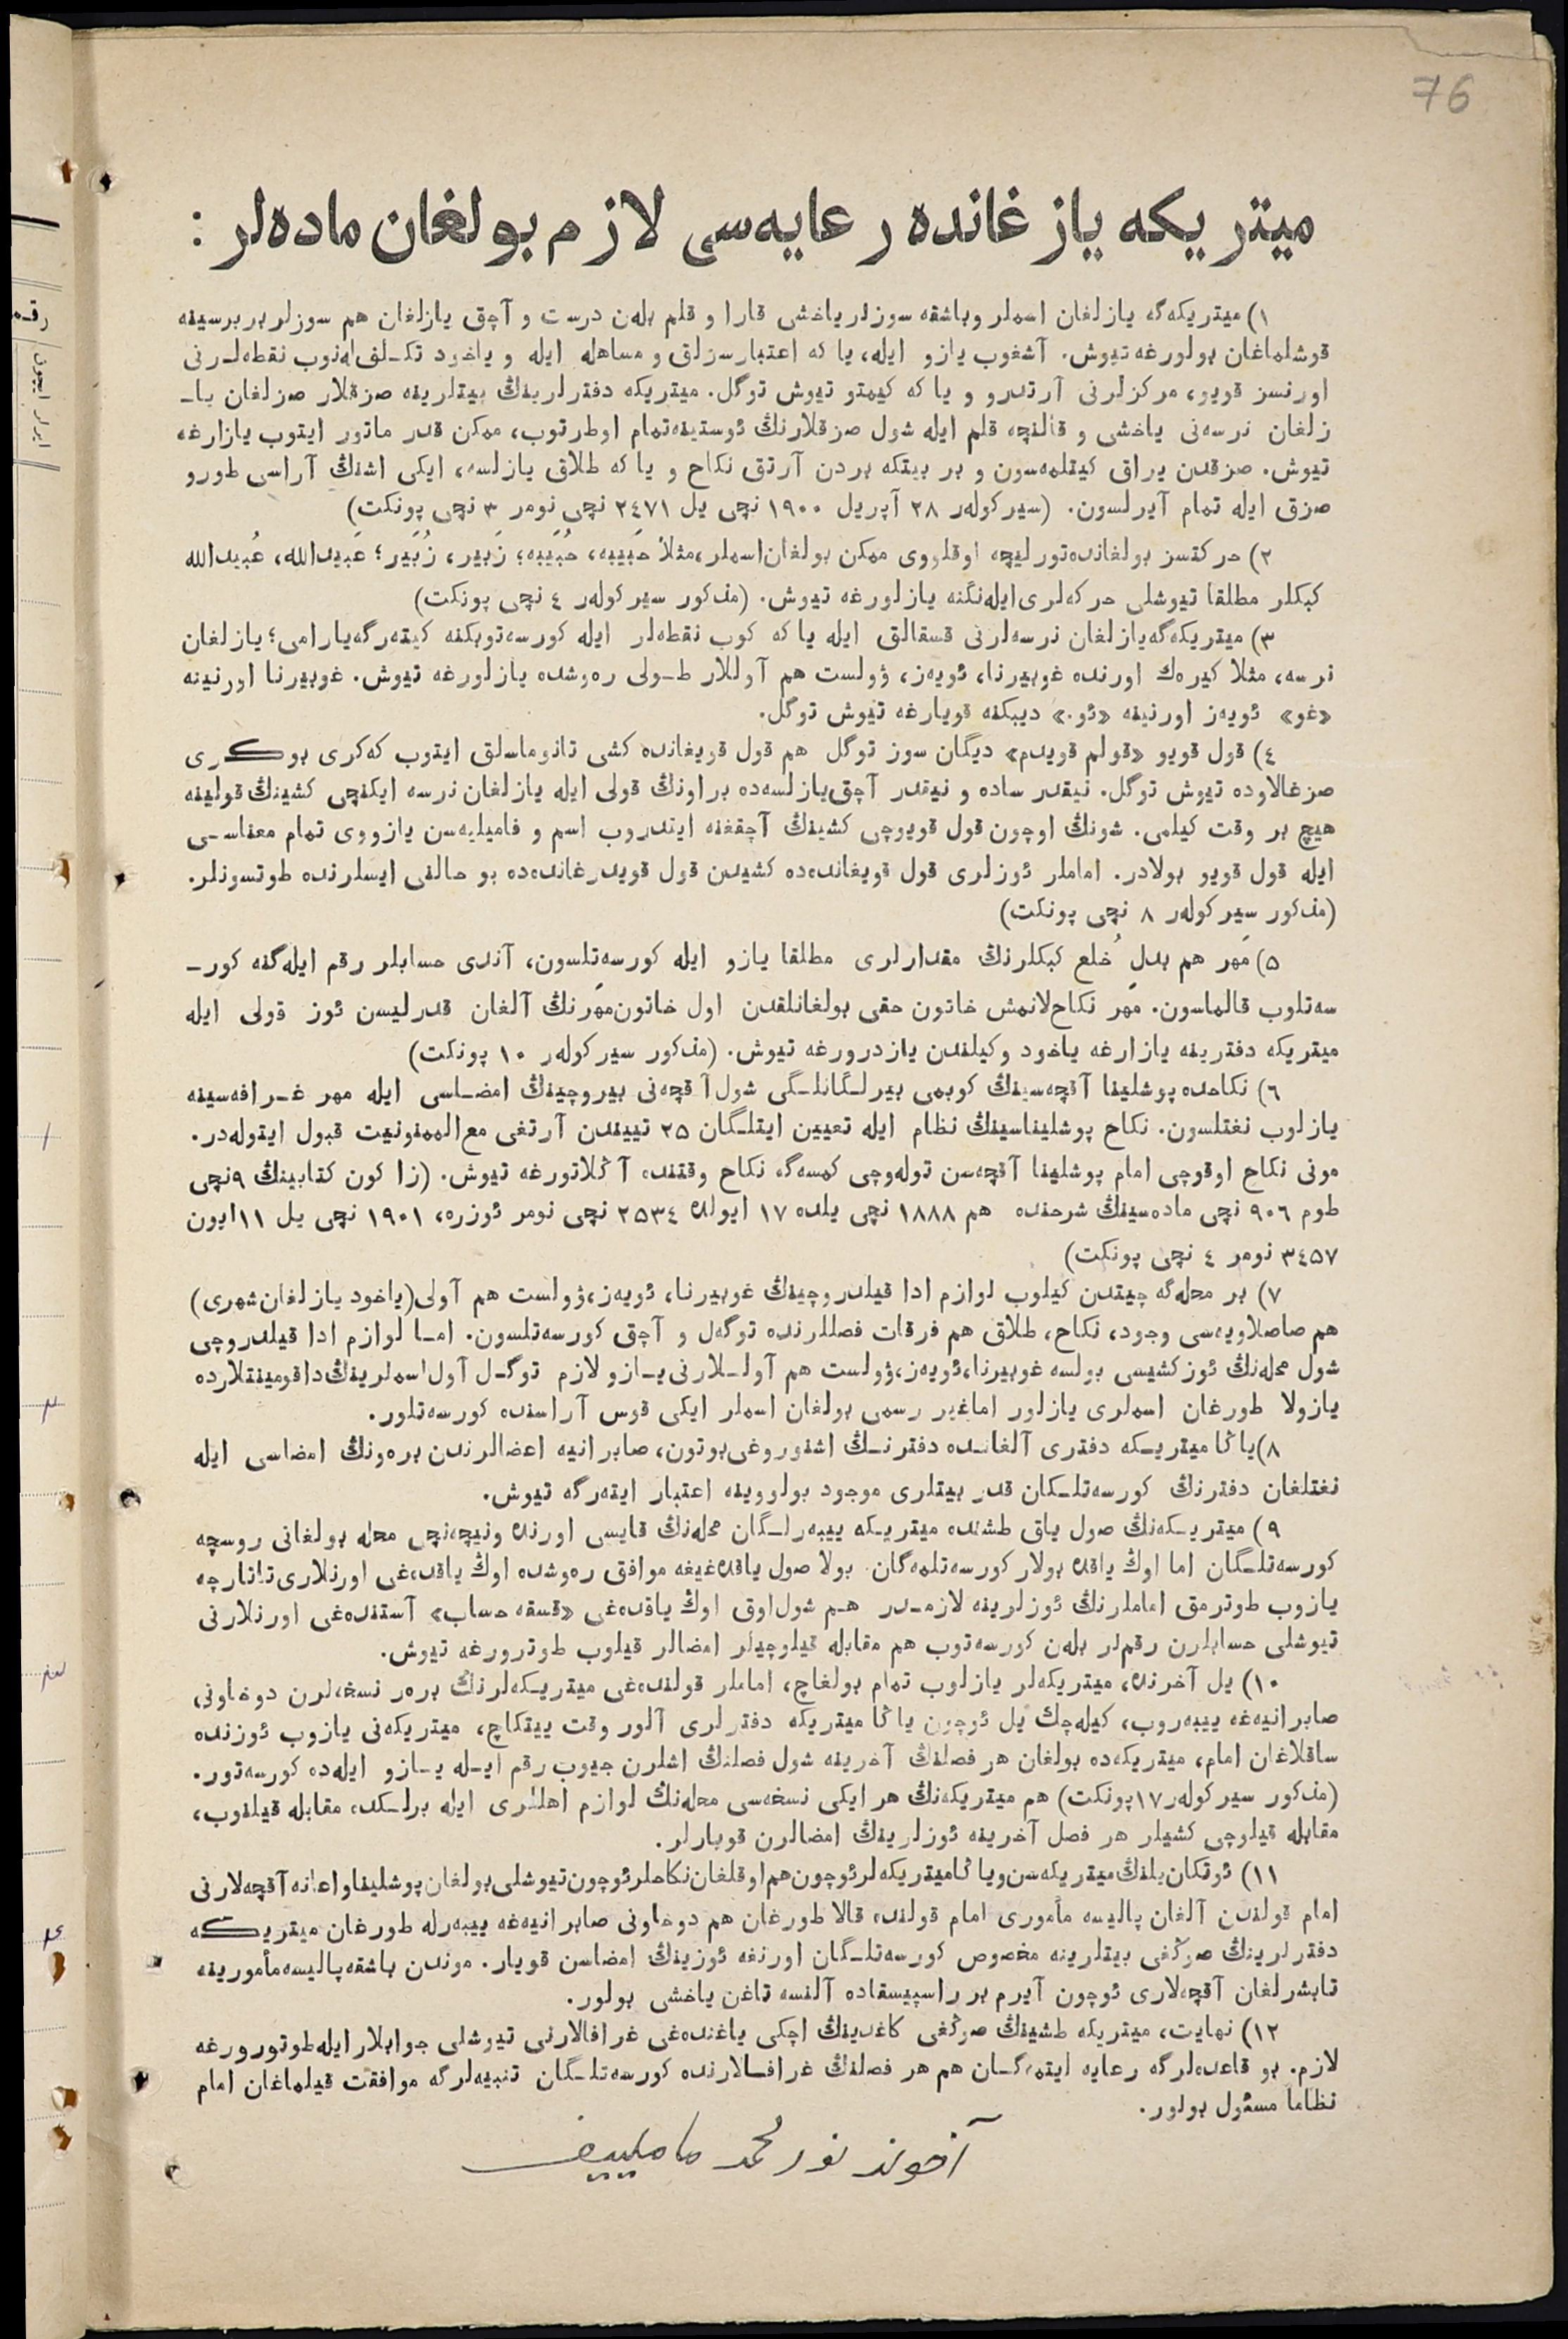 76
میتریكه یازغانده رعایه‌سی لازم بولغان ماده‌لر :
۱) میتریكه‌گه یازلغان اسملر و باشقه سوزلر یاخشی قارا و قلم بله‌ن درست و آچق یازلغان هم سوزلر بر برسینه
قوشلماغان بولورغه تیوش. آشغوب یازو ایله، یا كه اعتبارسزلق و مساهله ایله و یاخود تكلف‌له‌نوب نقطه‌لرنی
اورنسز قویو، مركزلرنی آرتدرو و یا كه كیمتو تیوش توگل. میتریكه دفترلرینڭ بیتلرینه صزقلار صزلغان یا-
زلغان نرسه‌نی یاخشی و قالنچه قلم ایله شول صزقلارنڭ ئوستینه تمام اوطرتوب، ممكن قدر ماتور ایتوب یازارغه
تیوش. صزقدن یراق كیتلمه‌سون و بر بیتكه بردن آرتق نكاح و یا كه طلاق یازلسه، ایكی اشنڭ آراسی طورو
صزق ایله تمام آیرلسون. (سیركوله‌ر ۲۸ آپریل ۱۹۰۰ نچی یل ۲٤۷۱ نچی نومر ۳ نچی پونكت)
۲) حركتسز بولغانده تورلیچه اوقلووی ممكن بولغان اسملر، مثلا حَبیبه، حُبَیبه؛ زَبیر، زُبَیر؛ عَبیدالله، عُبیدالله
كبكلر مطلقا تیوشلی حركه‌لری ایله‌نگنه یازلورغه تیوش. (مذكور سیركوله‌ر ٤ نچی پونكت)
۳) میتریكه‌گه یازلغان نرسه‌لرنی قسقالق ایله یا كه كوب نقطه‌لر ایله كورسه‌توبكنه كیته‌رگه یارامی؛ یازلغان
نرسه، مثلا كیره‌ك اورنده غوبیرنا، ئویه‌ز، ۋولست هم آوللار طولی ره‌وشده یازلورغه تیوش. غوبیرنا اورنینه
«غو» ئویه‌ز اورنینه «ئو.» دیبكنه قویارغه تیوش توگل.
٤) قول قویو «قولم قویدم» دیگان سوز توگل هم قول قویغانده كشی تانوماسلق ایتوب كه‌كری بوكری
صزغالاوده تیوش توگل. نیقدر ساده و نیقدر آچق یازلسه‌ده براونڭ قولی ایله یازلغان نرسه ایكنچی كشینڭ قولینه
هیچ بر وقت كیلمی. شونڭ اوچون قول قویوچی كشینڭ آچقغنه ایتدروب اسم و فامیلیه‌سن یازووی تمام معناسی
ایله قول قویو بولادر. اماملر ئوزلری قول قویغانده‌ده كشیدن قول قویدرغانده‌ده بو حالنی ایسلرنده طوتسونلر.
(مذكور سیركوله‌ر ۸ نچی پونكت)
۵) مَهر هم بدلِ خُلع كبكلرنڭ مقدارلری مطلقا یازو ایله كورسه‌تلسون، آندی حسابلر رقم ایله‌گنه كور-
سه‌تلوب قالماسون. مَهر نكاح‌لانمش خاتون حقی بولغانلقدن اول خاتون مَهرنڭ آلغان قدرلیسن ئوز قولی ایله
میتریكه دفترینه یازارغه یاخود وكیلندن یازدرورغه تیوش. (مذكور سیركوله‌ر ۱۰ پونكت)
٦) نكاحده پوشلینا آقچه‌سینڭ كوبمی بیرلگانلگی شول آقچه‌نی بیروچینڭ امضاسی ایله مهر غرافه‌سینه
یازلوب نغتلسون. نكاح پوشلیناسینڭ نظام ایله تعیین ایتلگان ۲۵ تییندن آرتغی مع الممنونیت قبول ایتوله‌در.
مونی نكاح اوقوچی امام پوشلینا آقچه‌سن توله‌وچی كمسه‌گه نكاح وقتنده آڭلاتورغه تیوش. (زاكون كتابینڭ ۹نچی
طوم ۹۰٦ نچی ماده‌سینڭ شرحنده هم ۱۸۸۸ نچی یلده ۱۷ ایولده ۲۵۳٤ نچی نومر ئوزره، ۱۹۰۱ نچی یل ۱۱ ایون
۳٤۵۷ نومر ٤ نچی پونكت)
۷) بر محله‌گه چیتدن كیلوب لوازم ادا قیلدروچینڭ غوبیرنا، ئویه‌ز، ۋولست هم آولی (یاخود یازلغان شهری)
هم صاصلاویه‌سی وجود، نكاح، طلاق هم فرقات فصللرنده توگه‌ل و آچق كورسه‌تلسون. اما لوازم ادا قیلدروچی
شول محله‌نڭ ئوز كشیسی بولسه غوبیرنا، ئویه‌ز، ۋولست هم آوللارنی یازو لازم توگل آول اسملرینڭ داقومینتلارده
یازولا طورغان اسملری یازلور اما غیر رسمی بولغان اسملر ایكی قوس آراسنده كورسه‌تلور.
۸) یاڭا میتریكه دفتری آلغانده دفترنڭ اشنوروغی بوتون، صابرانیه اعضالرندن بره‌ونڭ امضاسی ایله
نغتلغان دفترنڭ كورسه‌تلگان قدر بیتلری موجود بولووینه اعتبار ایته‌رگه تیوش.
۹) میتریكه‌نڭ صول یاق طشنده میتریكه ییبه‌رلگان محله‌نڭ قایسی اورنده ونیچه‌نچی محله بولغانی روسچه
كورسه‌تلگان اما اوڭ یاقده بولار كورسه‌تلمه‌گان. بولا صول یاقده‌غیغه موافق ره‌وشده اوڭ یاقده‌غی اورنلاری تاتارچه
یازوب طوترمق اماملرنڭ ئوزلرینه لازمدر هم شول‌اوق اوڭ یاقده‌غی «قسقه حساب» آستنده‌غی اورنلارنی
تیوشلی حسابلرن رقملر بله‌ن كورسه‌توب هم مقابله قیلوچیلر امضالر قیلوب طوترورغه تیوش.
۱۰) یل آخرنده، میتریكه‌لر یازلوب تمام بولغاچ، اماملر قولنده‌غی میتریكه‌لرنڭ بره‌ر نسخه‌لرن دوخاونی
صابرانیه‌غه ییبه‌روب، كیله‌چك یل ئوچون یاڭا میتریكه دفترلری آلور وقت ییتكاچ، میتریكه‌نی یازوب ئوزنده
ساقلاغان امام، میتریكه‌ده بولغان هر فصلنڭ آخرینه شول فصلنڭ اشلرن جیوب رقم ایله یازو ایله‌ده كورسه‌تور.
(مذكور سیركوله‌ر ۱۷ پونكت) هم میتریكه‌نڭ هر ایكی نسخه‌سی محله‌نڭ لوازم اهللری ایله برلكده مقابله قیلنوب،
مقابله قیلوچی كشیلر هر فصل آخرینه ئوزلرینڭ امضالرن قویارلر.
۱۱) ئوتكان یلنڭ میتریكه‌سن و یاڭا میتریكه‌لر ئوچون هم اوقلغان نكاحلر ئوچون تیوشلی بولغان پوشلینا و اعانه آقچه‌لارنی
امام قولندن آلغان پالیسه مأموری امام قولنده قالا طورغان هم دوخاونی صابرانیه‌غه ییبه‌رله طورغان میتریكه
دفترلرینڭ صوڭغی بیتلرینه مخصوص كورسه‌تلگان اورنغه ئوزینڭ امضاسن قویار. موندن باشقه پالیسه مأمورینه
تابشرلغان آقچه‌لاری ئوچون آیرم بر راسپیسقاده آلنسه تاغن یاخشی بولور.
۱۲) نهایت، میتریكه طشینڭ صوڭغی كاغدینڭ اچكی یاغنده‌غی غرافالارنی تیوشلی جوابلار ایله طوتورورغه
لازم. بو قاعده‌لرگه رعایه ایتمه‌گان هم هر فصلنڭ غرافالارنده كورسه‌تلگان تنبیه‌لرگه موافقت قیلماغان امام
نظاما مسئول بولور.
آخوند نورمحمد مامليیف